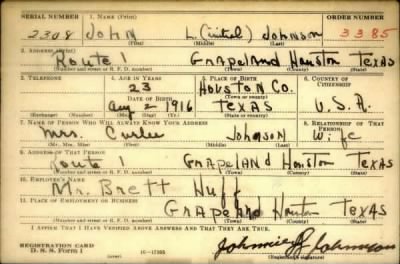 SERIAL NUMBER 1. NAME (Print) ORDER NUMBER
2308 JOHN L. (initial) Johnson 3385
(First) (Middle) (Last)
2. ADDRESS (Print)
Route 1 Grapeland Houston TEXAS
(Number and street or R. F. D. number) (Town) (County) (State)
3. TELEPHONE 4. AGE IN YEARS 5. PLACE OF BIRTH 6. COUNTRY OF CITIZENSHIP
23 HOUSTON CO.
DATE OF BIRTH
Aug 2 1916 TEXAS U.S.A.
(Mo.) (Day) (Yr.) (State or country)
7. NAME OF PERSON WHO WILL ALWAYS KNOW YOUR ADDRESS 8. RELATIONSHIP OF THAT PERSON
Mrs. Johnson Wife
(Mr., Mrs., Miss) (First) (Middle) (Last)
9. ADDRESS OF THAT PERSON
Route 1 GRAPELAND Houston TEXAS
(Number and street or R. F. D. number) (Town) (County) (State)
10. EMPLOYER'S NAME
Mr. Brett Huff
11. PLACE OF EMPLOYMENT OR BUSINESS
Grapeland Houston TEXAS
(Number and street or R. F. D. number) (Town) (County) (State)
I AFFIRM THAT I HAVE VERIFIED ABOVE ANSWERS AND THAT THEY ARE TRUE.
REGISTRATION CARD
D. S. S. Form 1 (over) Johnnie L Johnson
(Registrant's signature)